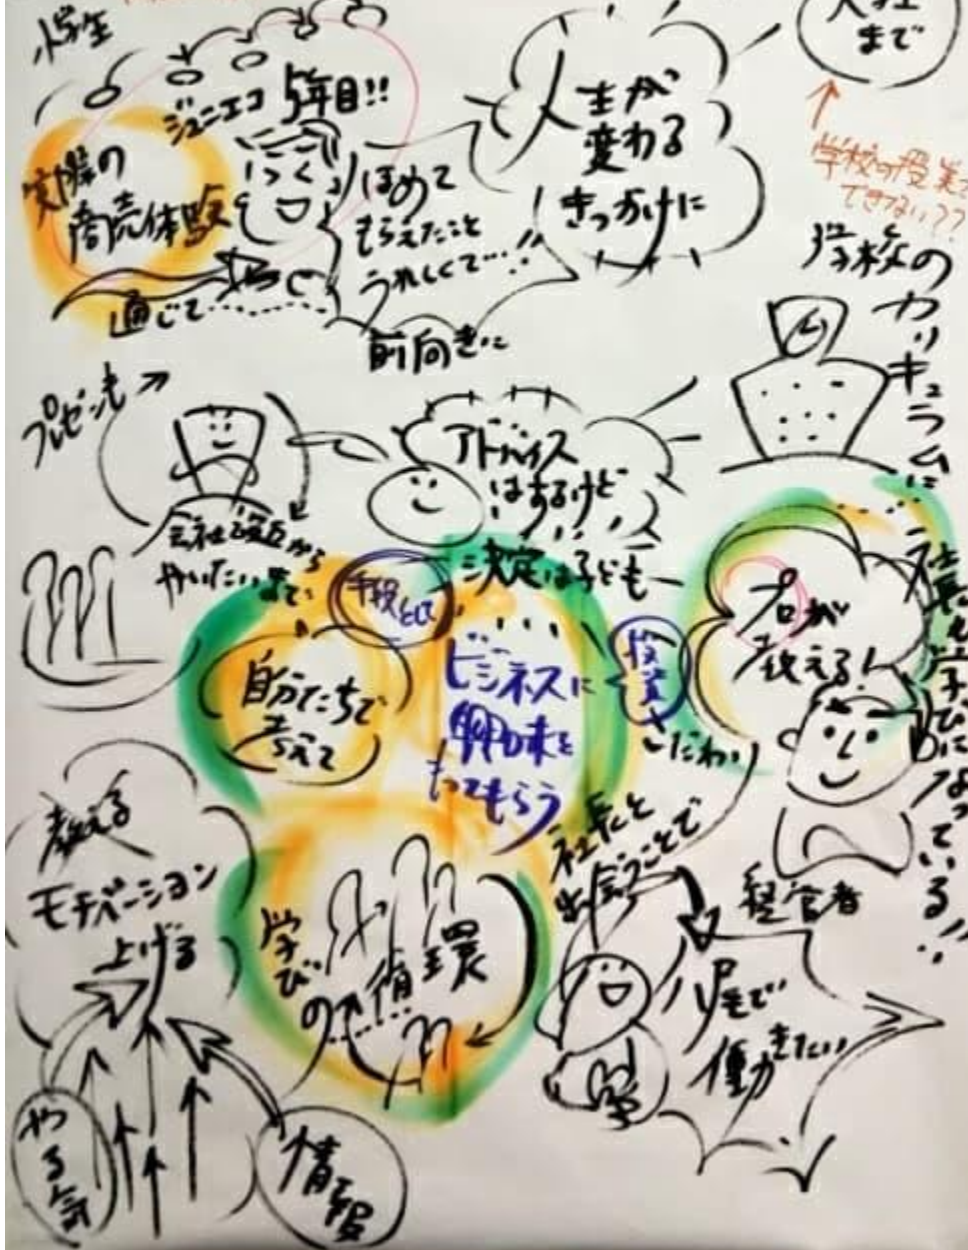 小学生
ジュニエコ 5年目!!
実際の
商売体験
通じて……
ほめて
もらえたこと
うれしくて…!!
前向きに
人生が
変わる
きっかけに
まで
学校の授業で
できない??
学校の
カリキュラムに……
プレゼンも→
会社設立から
アドバイス
はするけど
決定は子ども
手段として
自分たちで
考えて
ビジネスに
興味を
もってもらう
投資
プロが
教える!
社長も学びになっている!!
教える
モチベーション
上げる
学び
の循環
社長と
出会うことで
経営者
尾で
働きたい
やる気
情報